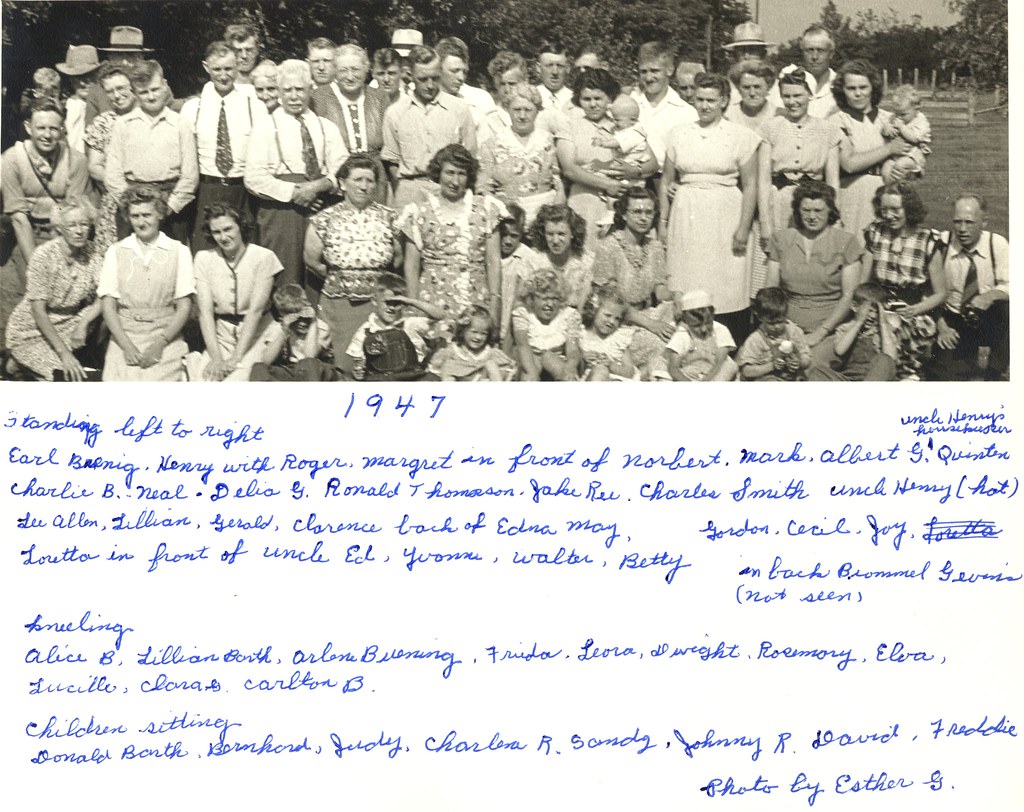 1947
Standing left to right
uncle Henry's
housekeeper
Earl Buenig. Henry with Roger. Margret in front of Norbert. Mark. Albert G. Quinten
Charlie B. Neal. Delia G. Ronald Thomason. Jake Ree. Charles Smith uncle Henry (hat)
Lee Allen, Lillian, Gerald, Clarence back of Edna May, Gordon. Cecil. Joy, Loretta
Loretta in front of uncle Ed, Yvonne, Walter, Betty
in back Brommel Gevens
(not seen)
kneeling
Alice B, Lillian Barth, Arlene Buening, Frieda. Leora, Dwight. Rosemary, Elva,
Lucille, Clara G. Carlton B.
Children sitting
Donald Barth. Bernhard, Judy, Charlene R. Sandy, Johnny R. David, Freddie
Photo by Esther G.